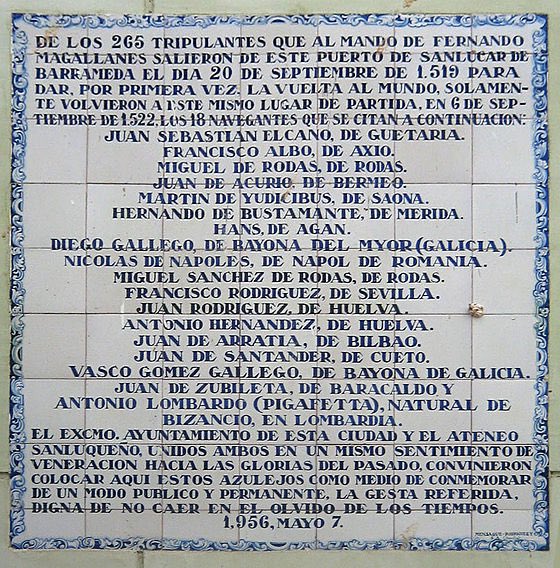 DE LOS 265 TRIPULANTES QUE AL MANDO DE FERNANDO
MAGALLANES SALIERON DE ESTE PUERTO DE SANLUCAR DE
BARRAMEDA EL DIA 20 DE SEPTIEMBRE DE 1.519 PARA
DAR, POR PRIMERA VEZ, LA VUELTA AL MUNDO, SOLAMEN-
TE VOLVIERON A ESTE MISMO LUGAR DE PARTIDA, EN 6 DE SEP-
TIEMBRE DE 1.522, LOS 18 NAVEGANTES QUE SE CITAN A CONTINUACION:
JUAN SEBASTIAN ELCANO, DE GUETARIA.
FRANCISCO ALBO, DE AXIO.
MIGUEL DE RODAS, DE RODAS.
JUAN DE ACURIO, DE BERMEO.
MARTIN DE YUDICIBUS, DE SAONA.
HERNANDO DE BUSTAMANTE, DE MERIDA.
HANS, DE AGAN.
DIEGO GALLEGO, DE BAYONA DEL MYOR (GALICIA).
NICOLAS DE NAPOLES, DE NAPOL DE ROMANIA.
MIGUEL SANCHEZ DE RODAS, DE RODAS.
FRANCISCO RODRIGUEZ, DE SEVILLA.
JUAN RODRIGUEZ, DE HUELVA.
ANTONIO HERNANDEZ, DE HUELVA.
JUAN DE ARRATIA, DE BILBAO.
JUAN DE SANTANDER, DE CUETO.
VASCO GOMEZ GALLEGO, DE BAYONA DE GALICIA.
JUAN DE ZUBILETA, DE BARACALDO Y
ANTONIO LOMBARDO (PIGAFETTA), NATURAL DE
BIZANCIO, EN LOMBARDIA.
EL EXCMO. AYUNTAMIENTO DE ESTA CIUDAD Y EL ATENEO
SANLUQUEÑO, UNIDOS AMBOS EN UN MISMO SENTIMIENTO DE
VENERACION HACIA LAS GLORIAS DEL PASADO, CONVINIERON
COLOCAR AQUI ESTOS AZULEJOS COMO MEDIO DE CONMEMORAR
DE UN MODO PUBLICO Y PERMANENTE, LA GESTA REFERIDA,
DIGNA DE NO CAER EN EL OLVIDO DE LOS TIEMPOS.
1.956, MAYO 7.
MENSAQUE-RODRIGUEZ Y Cª